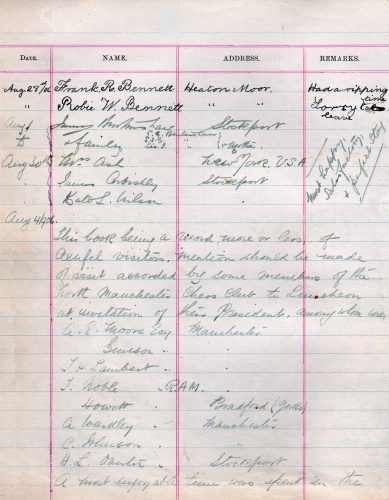 DATE. NAME. ADDRESS. REMARKS.
Aug 28th/06 Frank R. Bennett Heaton Moor. Had a ripping time
" Robie W. Bennett " Sorry to leave
Aug Stockport
& family
Aug 20th Mrs Ash New York U.S.A
" James Stockport
" Kate L. Wilson "
Most happy, &
Aug 4/06.
This book being a record, more or less, of
visitors, mention should be made
of visit accorded by some members of the
North Manchester Chess Club to Luncheon
at invitation of their President, among whom were,
A. E. Moore Esq Manchester
"
T. H. Lambert " "
T. Noble " R.A.M. "
Howitt " Bradford (Yorks)
A Wardley " Manchester
C. Johnson " "
H. L. " Stockport
A most enjoyable time was spent in the